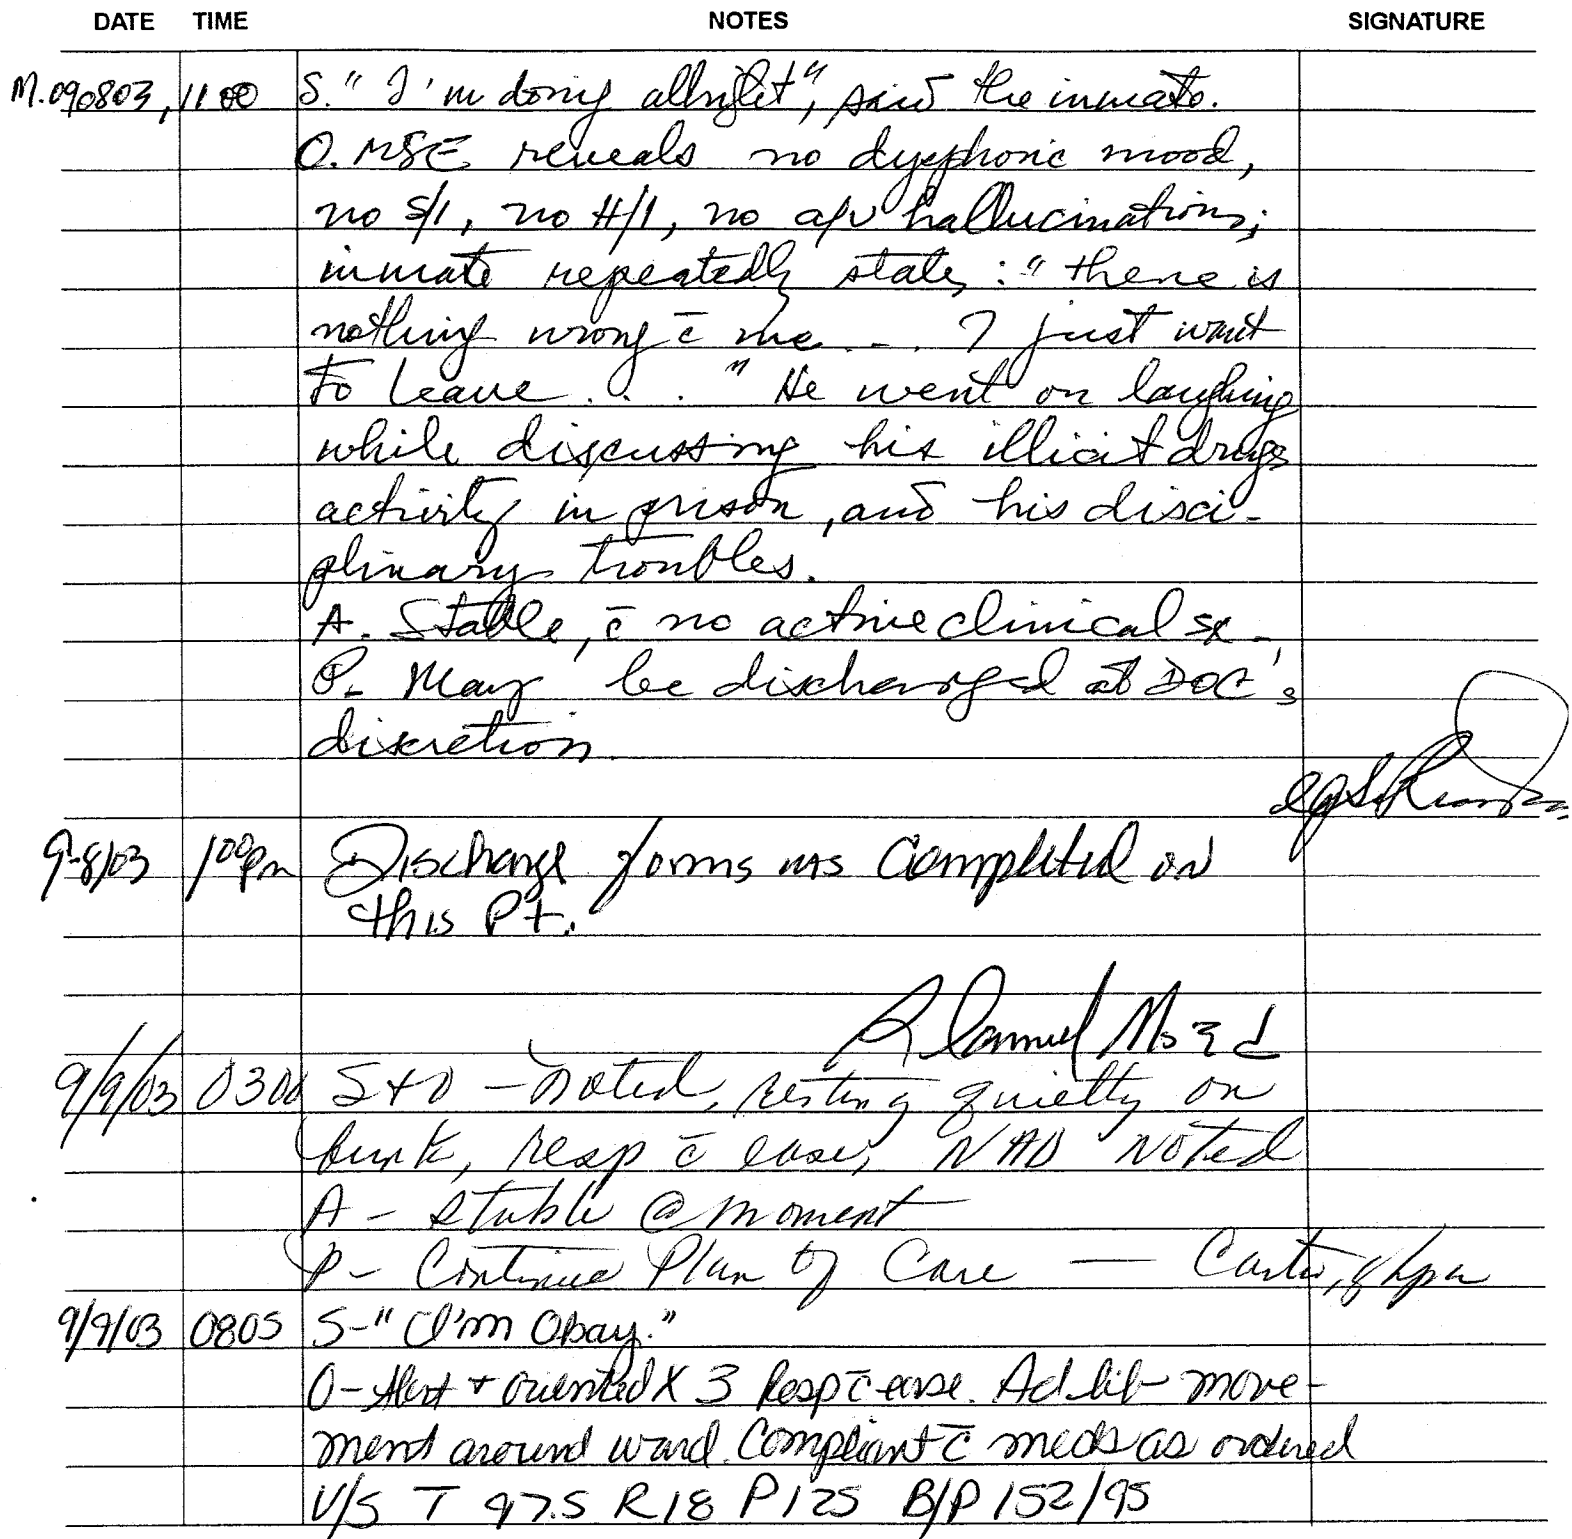 DATE TIME NOTES SIGNATURE
M.090803, 1100 S. "I'm doing allright", said the inmate.
O. MSE reveals no dysphoric mood,
no S/I, no H/I, no a/v hallucinations;
inmate repeatedly states: "there is
nothing wrong c̄ me ... I just want
to leave . . . " He went on laughing
while discussing his illicit drugs
activity in prison, and his disci-
plinary troubles.
A. Stable, c̄ no active clinical sx.
P. May be discharged at DOC's
discretion.
9-8/03 1:00pm Discharge forms was Completed on
this Pt.
9/9/03 0300 S+O - noted, resting quietly on
bunk, resp c̄ ease, NAD Noted
A - stable @ moment
P - Continue Plan of Care —
9/9/03 0805 S-"I'm Okay."
O-Alert + oriented X 3 Resp c̄ ease. Ad lib move-
ment around ward. Compliant c̄ meds as ordered
V/S T 97.5 R 18 P 125 B/P 152/95